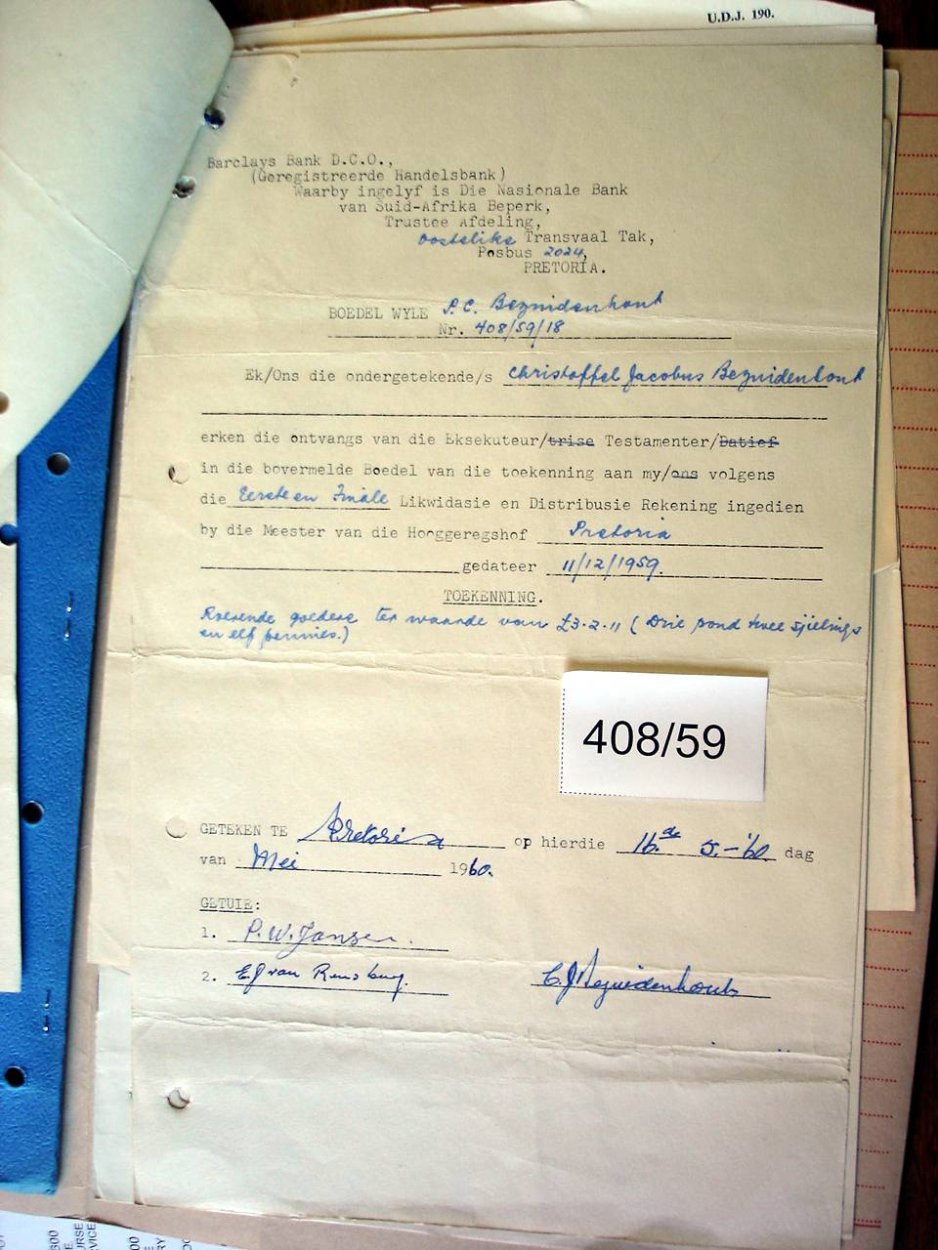 U.D.J. 190.
Barclays Bank D.C.O.,
(Geregistreerde Handelsbank)
Waarby ingelyf is Die Nasionale Bank
van Suid-Afrika Beperk,
Trustee Afdeling,
Oostelike Transvaal Tak,
Posbus 2024,
PRETORIA.
BOEDEL WYLE P.C. Bezuidenhout
Nr. 408/59/18
Ek/Ons die ondergetekende/s Christoffel Jacobus Bezuidenhout
erken die ontvangs van die Eksekuteur/trise Testamenter/Datief
in die bovermelde Boedel van die toekenning aan my/ons volgens
die Eerste en Finale Likwidasie en Distribusie Rekening ingedien
by die Meester van die Hooggeregshof Pretoria
gedateer 11/12/1959.
TOEKENNING.
Roerende goedere ter waarde van £3.2.11 (Drie pond twee sjielings
en elf pennies.)
408/59
GETEKEN TE Pretoria op hierdie 16de 5.-'60 dag
van Mei 1960.
GETUIE:
1. P.W. Jansen.
2. E.J van Rensburg. C.J Bezuidenhout